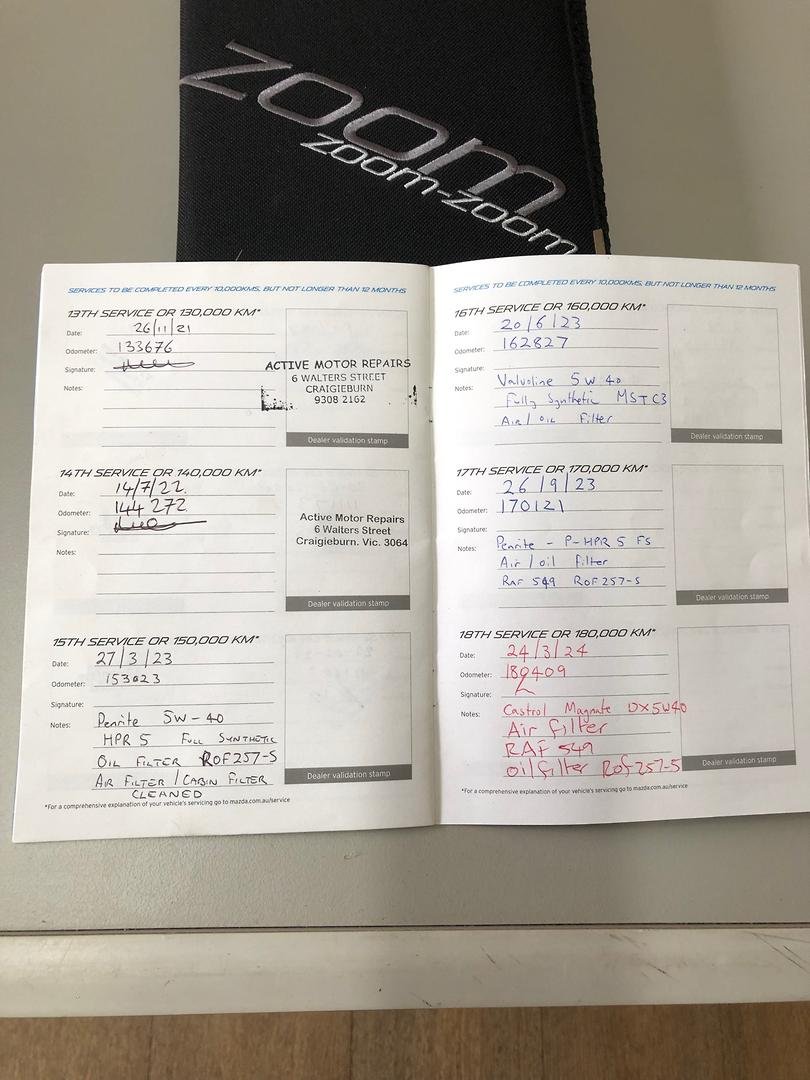 zoom
zoom-zoom
SERVICES TO BE COMPLETED EVERY 10,000KMS, BUT NOT LONGER THAN 12 MONTHS
13TH SERVICE OR 130,000 KM*
Date: 26/11/21
Odometer: 133676
Signature:
Notes:
ACTIVE MOTOR REPAIRS
6 WALTERS STREET
CRAIGIEBURN
9308 2162
Dealer validation stamp
14TH SERVICE OR 140,000 KM*
Date: 14/7/22.
Odometer: 144 272.
Signature:
Notes:
Active Motor Repairs
6 Walters Street
Craigieburn. Vic. 3064
Dealer validation stamp
15TH SERVICE OR 150,000 KM*
Date: 27/3/23
Odometer: 153023
Signature:
Notes: Penrite 5W-40
HPR 5 FULL SYNTHETIC
OIL FILTER ROF257-S
AIR FILTER / CABIN FILTER
CLEANED
Dealer validation stamp
*For a comprehensive explanation of your vehicle's servicing go to mazda.com.au/service
SERVICES TO BE COMPLETED EVERY 10,000KMS, BUT NOT LONGER THAN 12 MONTHS
16TH SERVICE OR 160,000 KM*
Date: 20/6/23
Odometer: 162827
Signature:
Notes: Valvoline 5w 40
Fully Synthetic MST C3
Air / oil Filter
Dealer validation stamp
17TH SERVICE OR 170,000 KM*
Date: 26/9/23
Odometer: 170121
Signature:
Notes: Penrite - P-HPR 5 FS
Air / oil filter
RAF 549 ROF257-S
Dealer validation stamp
18TH SERVICE OR 180,000 KM*
Date: 24/3/24
Odometer: 180409
Signature:
Notes: Castrol Magnate DX5W40
Air filter
RAF 549
oil filter Rof257-S
Dealer validation stamp
*For a comprehensive explanation of your vehicle's servicing go to mazda.com.au/service